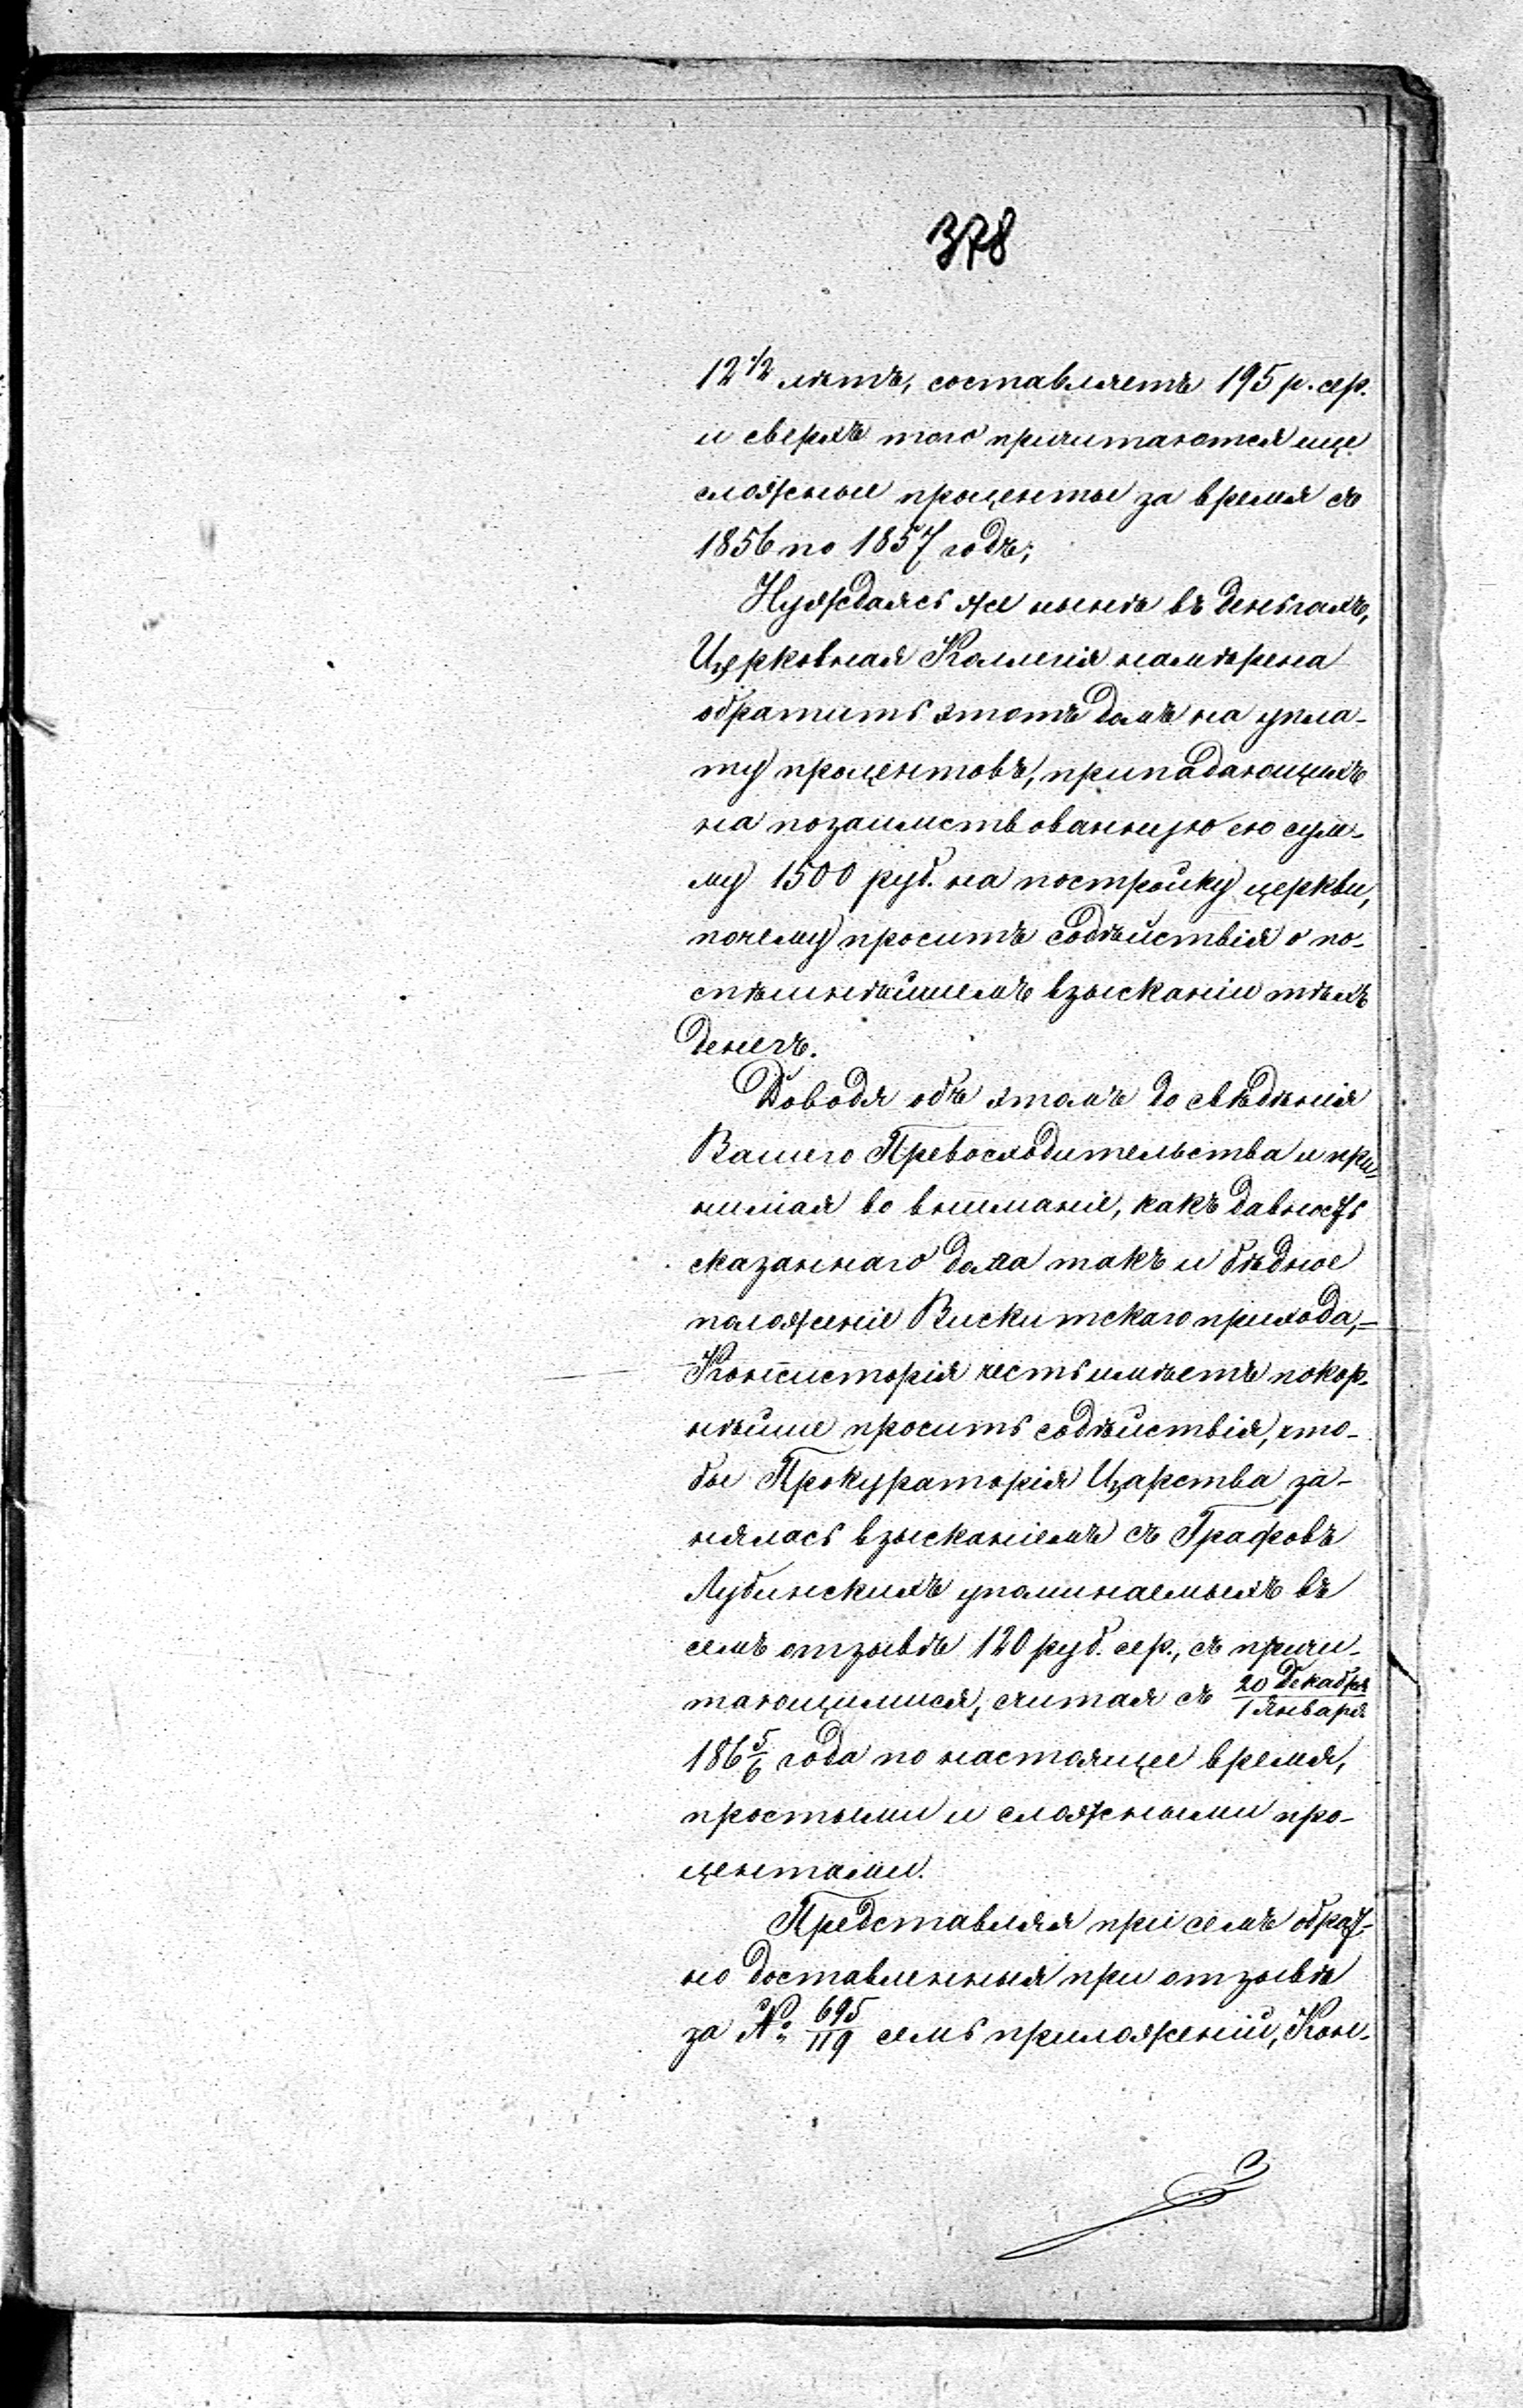 378
12 1/2 лѣтъ, составляетъ 195 р. сер.
и сверхъ того причитаются еще
сложные проценты за время съ
1856 по 1857 годъ;
Нуждаясь же нынѣ въ деньгахъ,
Церковная Коллегія намѣрена
обратить этотъ долгъ на упла-
ту процентовъ, припадающихъ
на позаимствованную ею сум-
му 1500 руб. на постройку церкви,
почему проситъ содѣйствія о по-
спѣшнѣйшемъ взысканіи тѣхъ
денегъ.
Доводя объ этомъ до свѣдѣнія
Вашего Превосходительства и при-
нимая во вниманіе, какъ давность
сказаннаго долга такъ и бѣдное
положеніе Вискитскаго прихода,=
Консисторія честь имѣетъ покор-
нѣйше просить содѣйствія, что-
бы Прокураторія Царства за-
нялась взысканіемъ съ Графовъ
Лубинскихъ упоминаемыхъ въ
семъ отзывѣ 120 руб. сер., съ причи-
тающимися, считая съ 20 Декабря/1 Января
186 5/6 года по настоящее время,
простыми и сложными про-
центами.
Представляя при семъ обрат-
но доставленныя при отзывѣ
за № 695/119 семь приложеній, Кон-